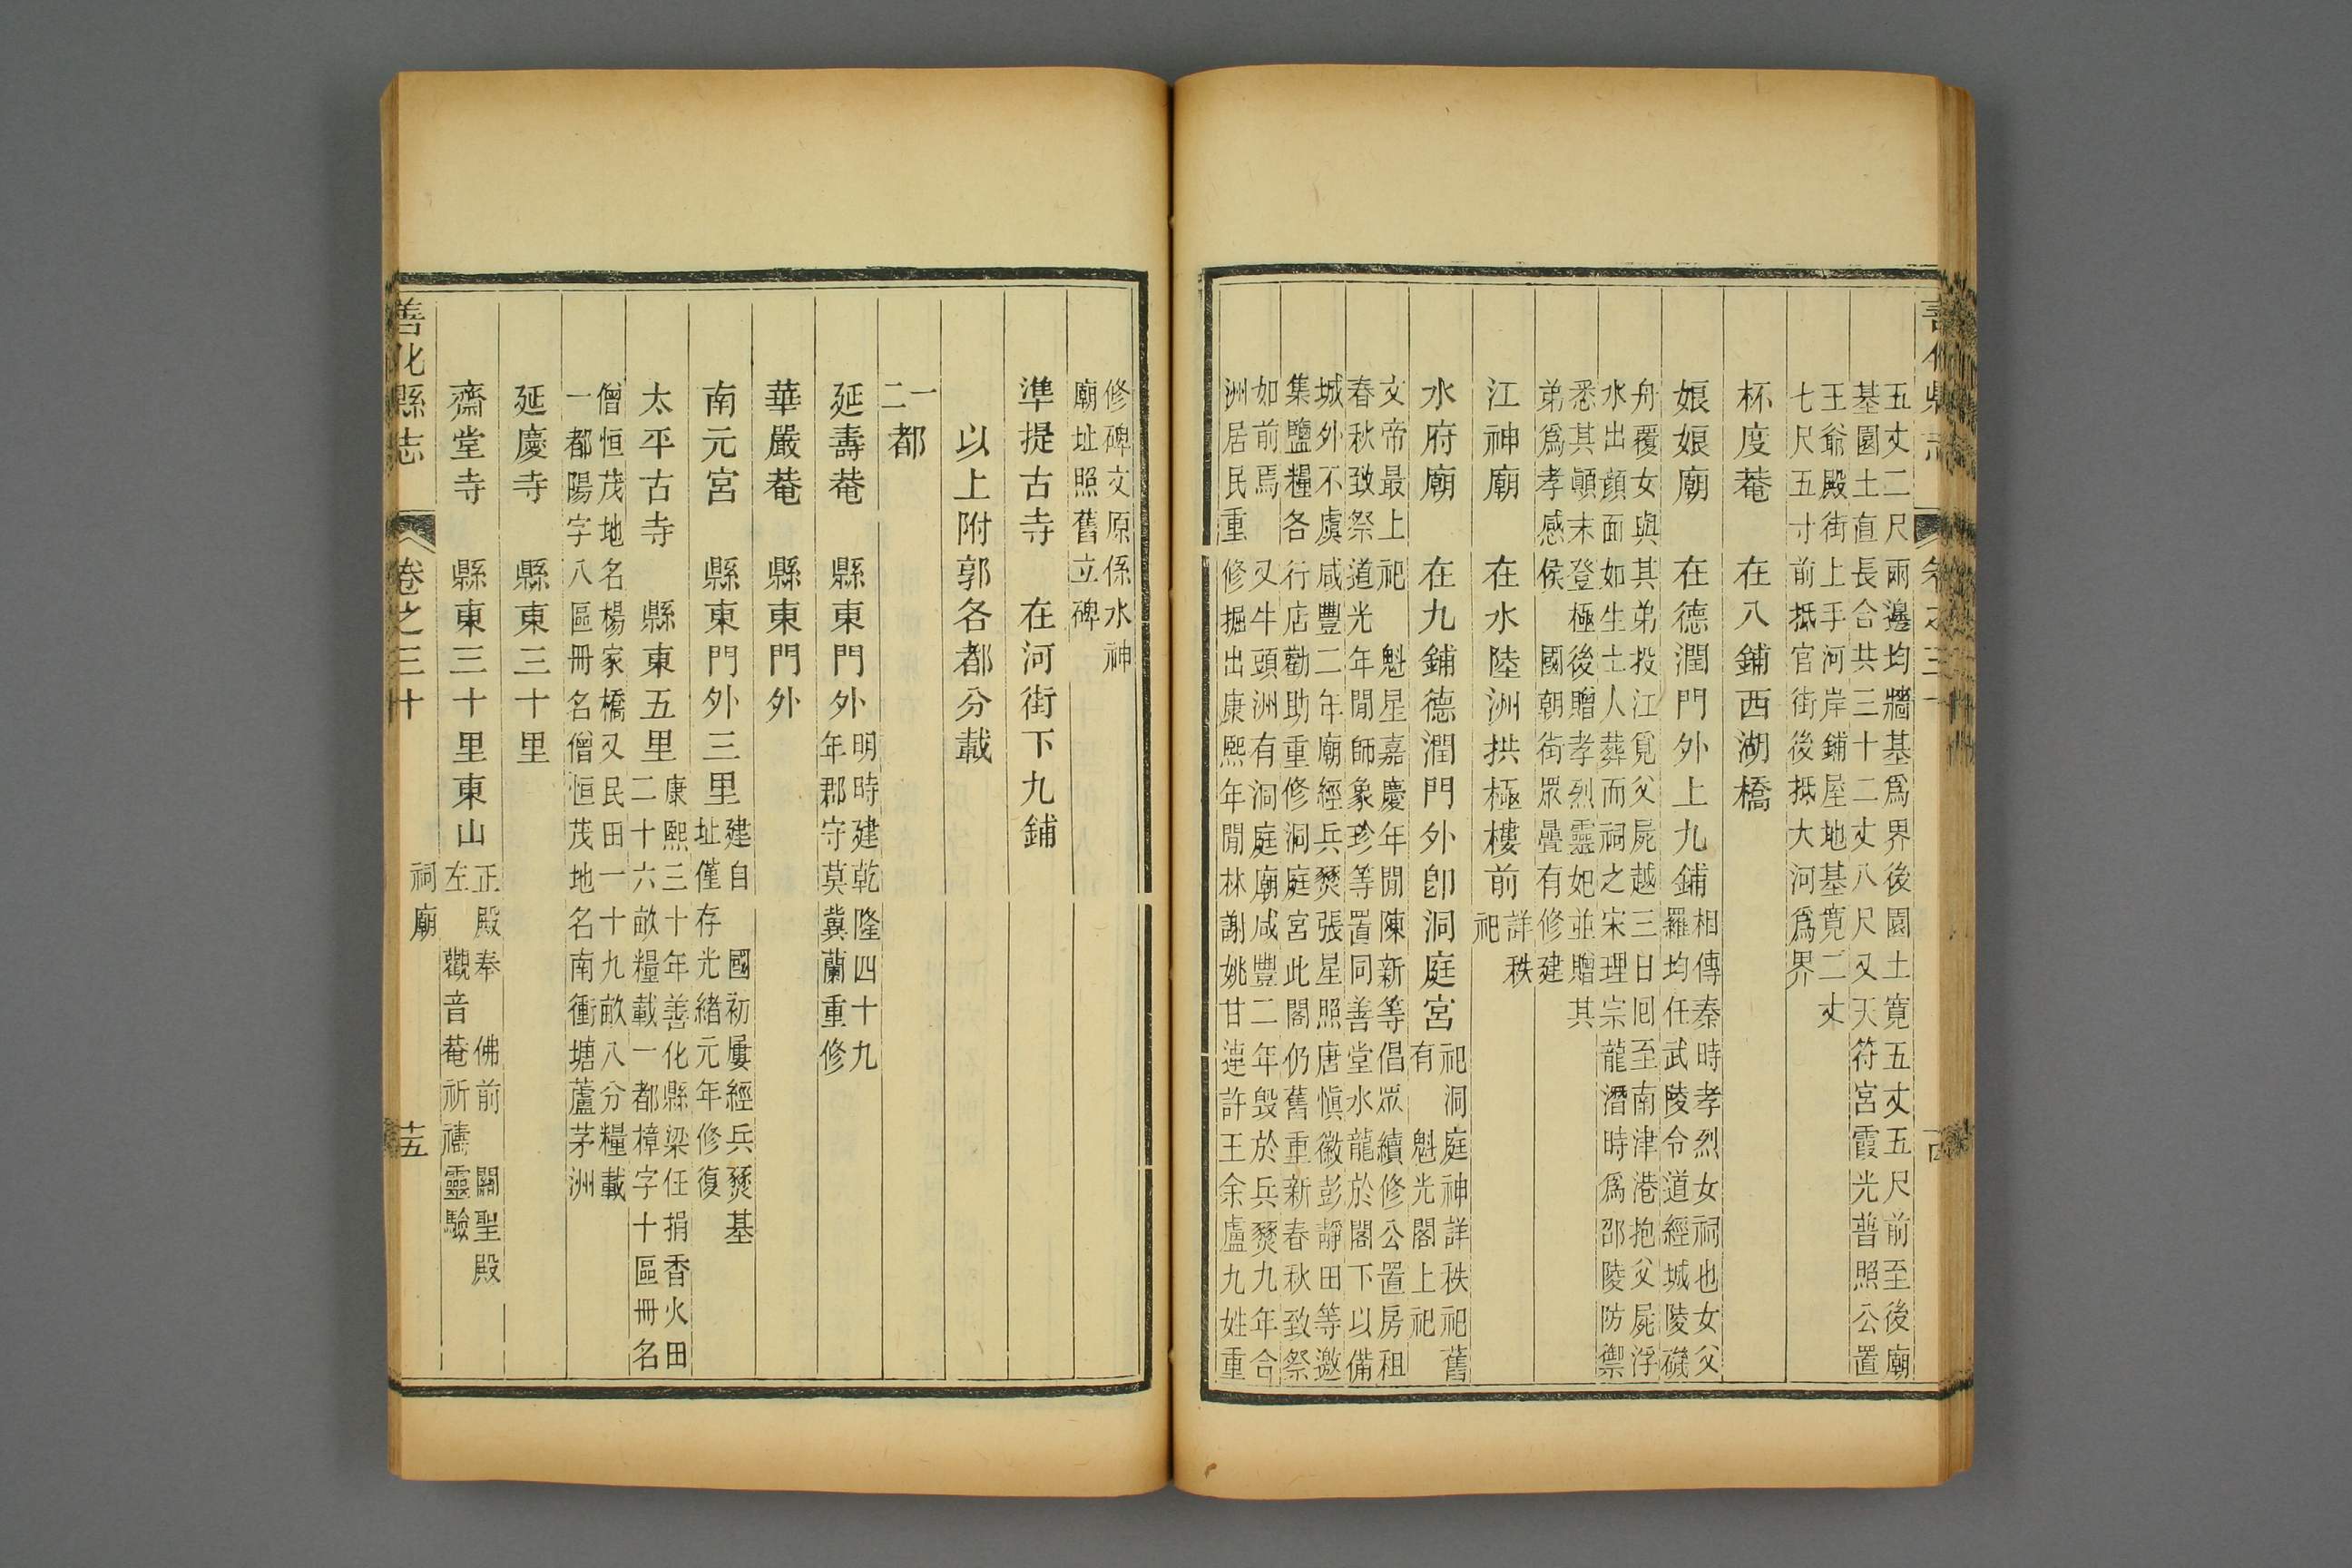 五丈二尺兩邊均牆基爲界後園土寬五丈五尺前至後廟
基園土直長合共三十二丈八尺又天符宮霞光普照公置
王爺殿街上手河岸鋪屋地基寬二丈
七尺五寸前抵官街後抵大河爲界
杯度菴　在八鋪西湖橋
娘娘廟　在德潤門外上九鋪
相傳秦時孝烈女祠也女父
羅均任武陵令道經城陵磯
舟覆女與其弟投江覓父屍越三日囘至南津港抱父屍浮
水出顔面如生士人葬而祠之宋理宗龍潛時爲邵陵防禦
悉其顛末登極後贈孝烈靈妃並贈其
弟爲孝感侯　國朝街眾疊有修建
江神廟　在水陸洲拱極樓前
詳秩
祀
水府廟　在九鋪德潤門外卽洞庭宮
祀洞庭神詳秩祀舊
有　魁光閣上祀
文帝最上祀　魁星嘉慶年閒陳新等倡眾續修公置房租
春秋致祭道光年閒師象珍等置同善堂水龍於閣下以備
城外不虞咸豐二年廟經兵燹張星照唐愼徽彭靜田等邀
集鹽糧各行店勸助重修洞庭宮此閣仍舊重新春秋致祭
如前焉　又牛頭洲有洞庭廟咸豐二年毀於兵燹九年合
洲居民重修掘出康熙年閒林謝姚甘連許王余盧九姓重
修碑文原係水神
廟址照舊立碑
準提古寺　在河街下九鋪
以上附郭各都分載
一二都
延壽菴　縣東門外
明時建乾隆四十九
年郡守莫冀蘭重修
華嚴菴　縣東門外
南元宮　縣東門外三里
建自　國初屢經兵燹基
址僅存光緒元年修復
太平古寺　縣東五里
康熙三十年善化縣梁任捐香火田
二十六畝糧載一都樟字十區冊名
僧恒茂地名楊家橋又民田一十九畝八分糧載
一都陽字八區冊名僧恒茂地名南衝塘蘆茅洲
延慶寺　縣東三十里
齋堂寺　縣東三十里東山
正殿奉　佛前　關聖殿
左　觀音菴祈禱靈驗
祠廟
善化縣志　卷之三十　十五